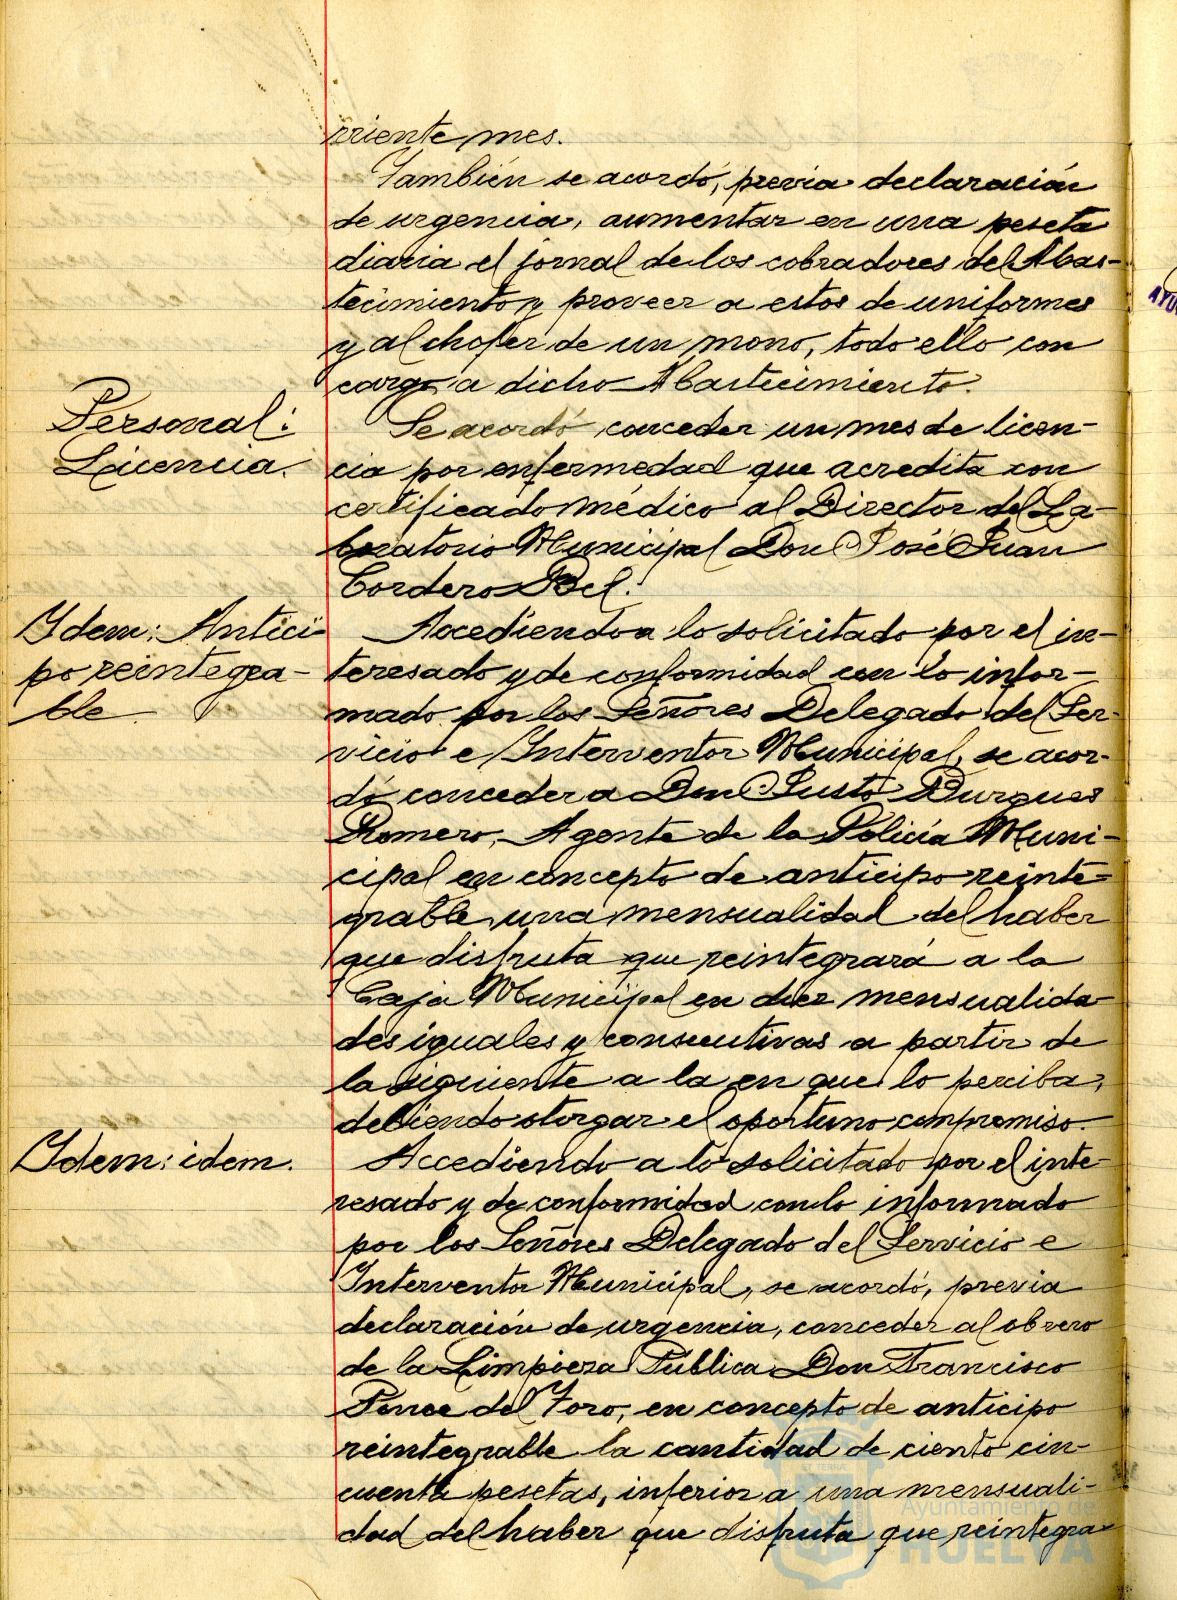 rriente mes.
También se acordó, previa declaración
de urgencia, aumentar en una peseta
diaria el jornal de los cobradores del Abas-
tecimiento y proveer a estos de uniformes
y al chofer de un mono, todo ello con
cargo a dicho Abastecimiento.
Personal:
Licencia.
Se acordó conceder un mes de licen-
cia por enfermedad que acredita con
certificado médico al Director del La-
boratorio Municipal Don José Juan
Cordero Bel.
Idem: Antici-
po reintegra-
ble
Accediendo a lo solicitado por el in-
teresado y de conformidad con lo infor-
mado por los Señores Delegado del Ser-
vicio e Interventor Municipal, se acor-
dó conceder a Don Justo Burgues
Romero, Agente de la Policía Muni-
cipal en concepto de anticipo reinte-
grable, una mensualidad del haber
que disfruta que reintegrará a la
Caja Municipal en diez mensualida-
des iguales y consecutivas a partir de
la siguiente a la en que lo perciba,
debiendo otorgar el oportuno compromiso.
Idem: idem.
Accediendo a lo solicitado por el inte-
resado y de conformidad con lo informado
por los Señores Delegado del Servicio e
Interventor Municipal, se acordó, previa
declaración de urgencia, conceder al obrero
de la Limpieza Pública Don Francisco
Ponce del Toro, en concepto de anticipo
reintegrable la cantidad de ciento cin-
cuenta pesetas, inferior a una mensuali-
dad del haber que disfruta que reintegra-
Ayuntamiento de
HUELVA